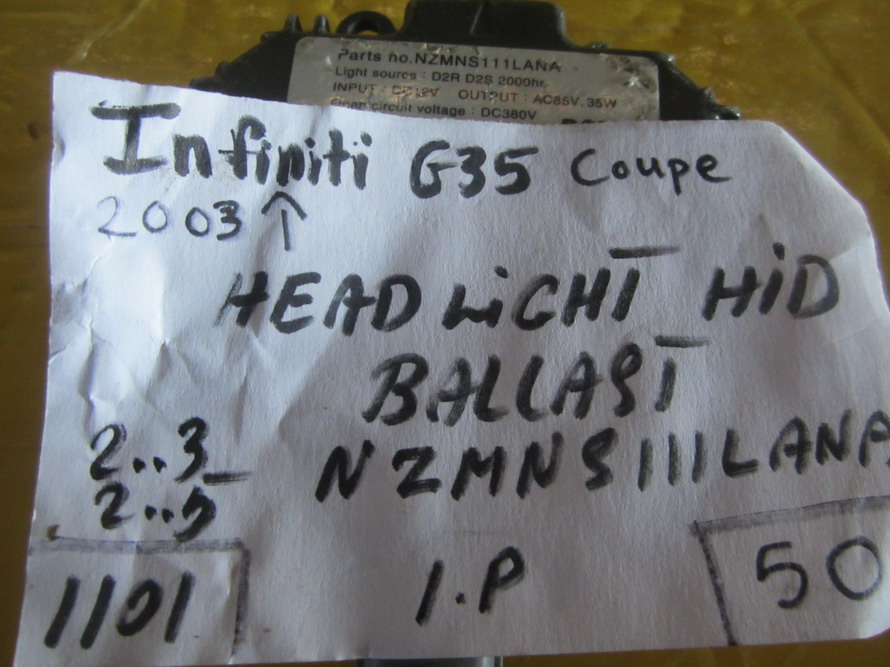 Parts no.NZMNS111LANA
Light source : D2R D2S 2000hr.
INPUT : DC12V OUTPUT : AC85V. 35W
Open circuit voltage : DC380V
Infiniti G35 Coupe
2003 ↑
HEADLiGHT HiD
BALLAST
2..3
NZMNS111LANA
2..5
1101
1.P
50